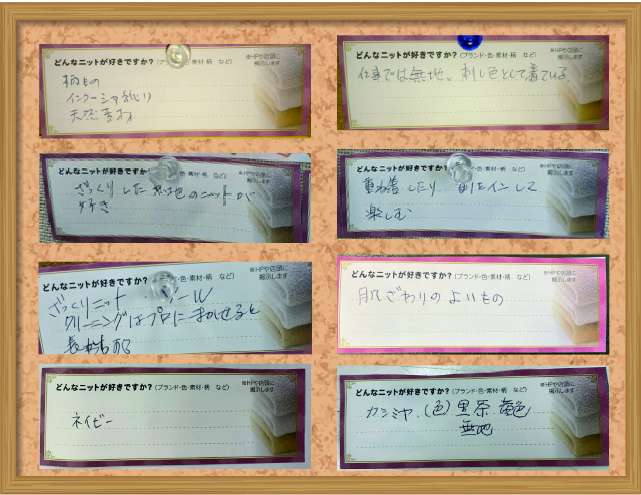 どんなニットが好きですか？(ブランド・色・素材・柄 など)
※HPや店頭に
掲示します
柄もの
インターシャ編み
天然素材
どんなニットが好きですか？(ブランド・色・素材・柄 など)
※HPや店頭に
掲示します
仕事では無地。刺し色として着ている。
どんなニットが好きですか ・色・素材・柄 など)
※HPや店頭に
掲示します
ざっくりした 無地のニットが
好き
どんなニットが好きですか ・色・素材・柄 など)
※HPや店頭に
掲示します
重ね着したり 前をインして
楽しむ
どんなニットが好きですか？(ブランド・色・素材・柄 など)
※HPや店頭に
掲示します
ざっくりニット ウール
クリーニングはプロにまかせると
長持ちする
どんなニットが好きですか？(ブランド・色・素材・柄 など)
※HPや店頭に
掲示します
肌ざわりのよいもの
どんなニットが好きですか？(ブランド・色・素材・柄 など)
※HPや店頭に
掲示します
ネイビー
どんなニットが好きですか？(ブランド・色・素材・柄 など)
※HPや店頭に
掲示します
カシミヤ、(色)黒茶、黄色
無地